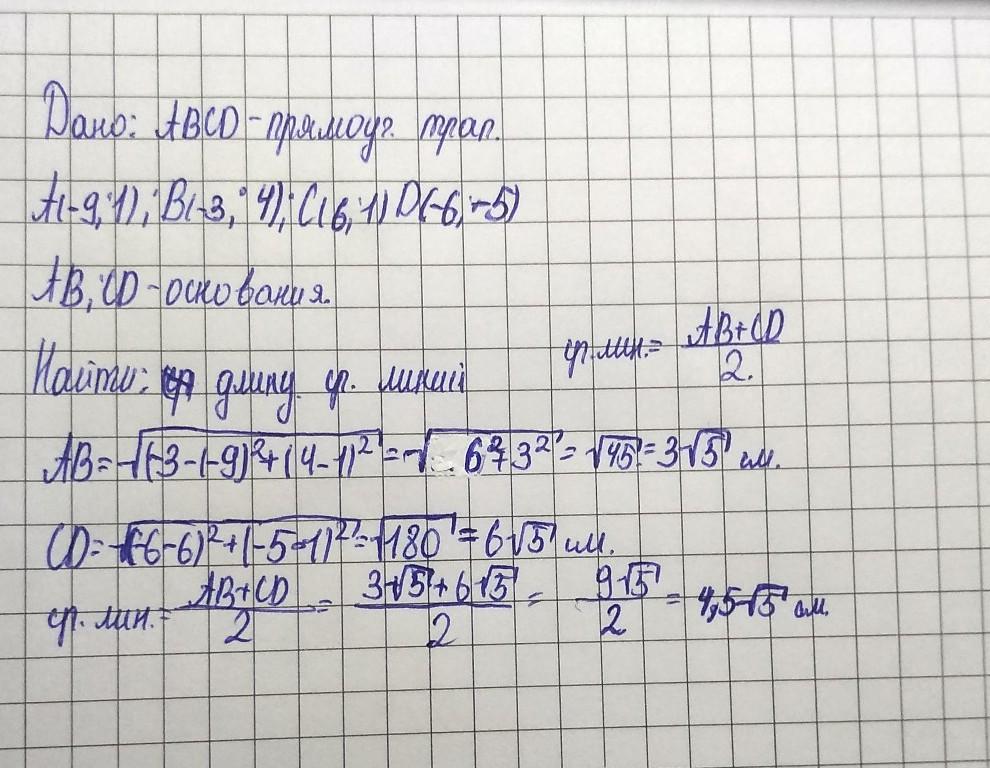 Дано: ABCD - прямоуг. трап.
A(-9; 1); B(-3; 4); C(6; 1) D(-6; -5)
AB, CD - основания.
Найти: длину ср. линий
ср. лин. = AB+CD / 2.
AB = √(-3-(-9)²+(4-1)² = √6²+3² = √45 = 3√5 см.
CD = √(-6-6)²+(-5-1)² = √180 = 6√5 см.
ср. лин. = AB+CD / 2 = 3√5+6√5 / 2 = 9√5 / 2 = 4,5√5 см.